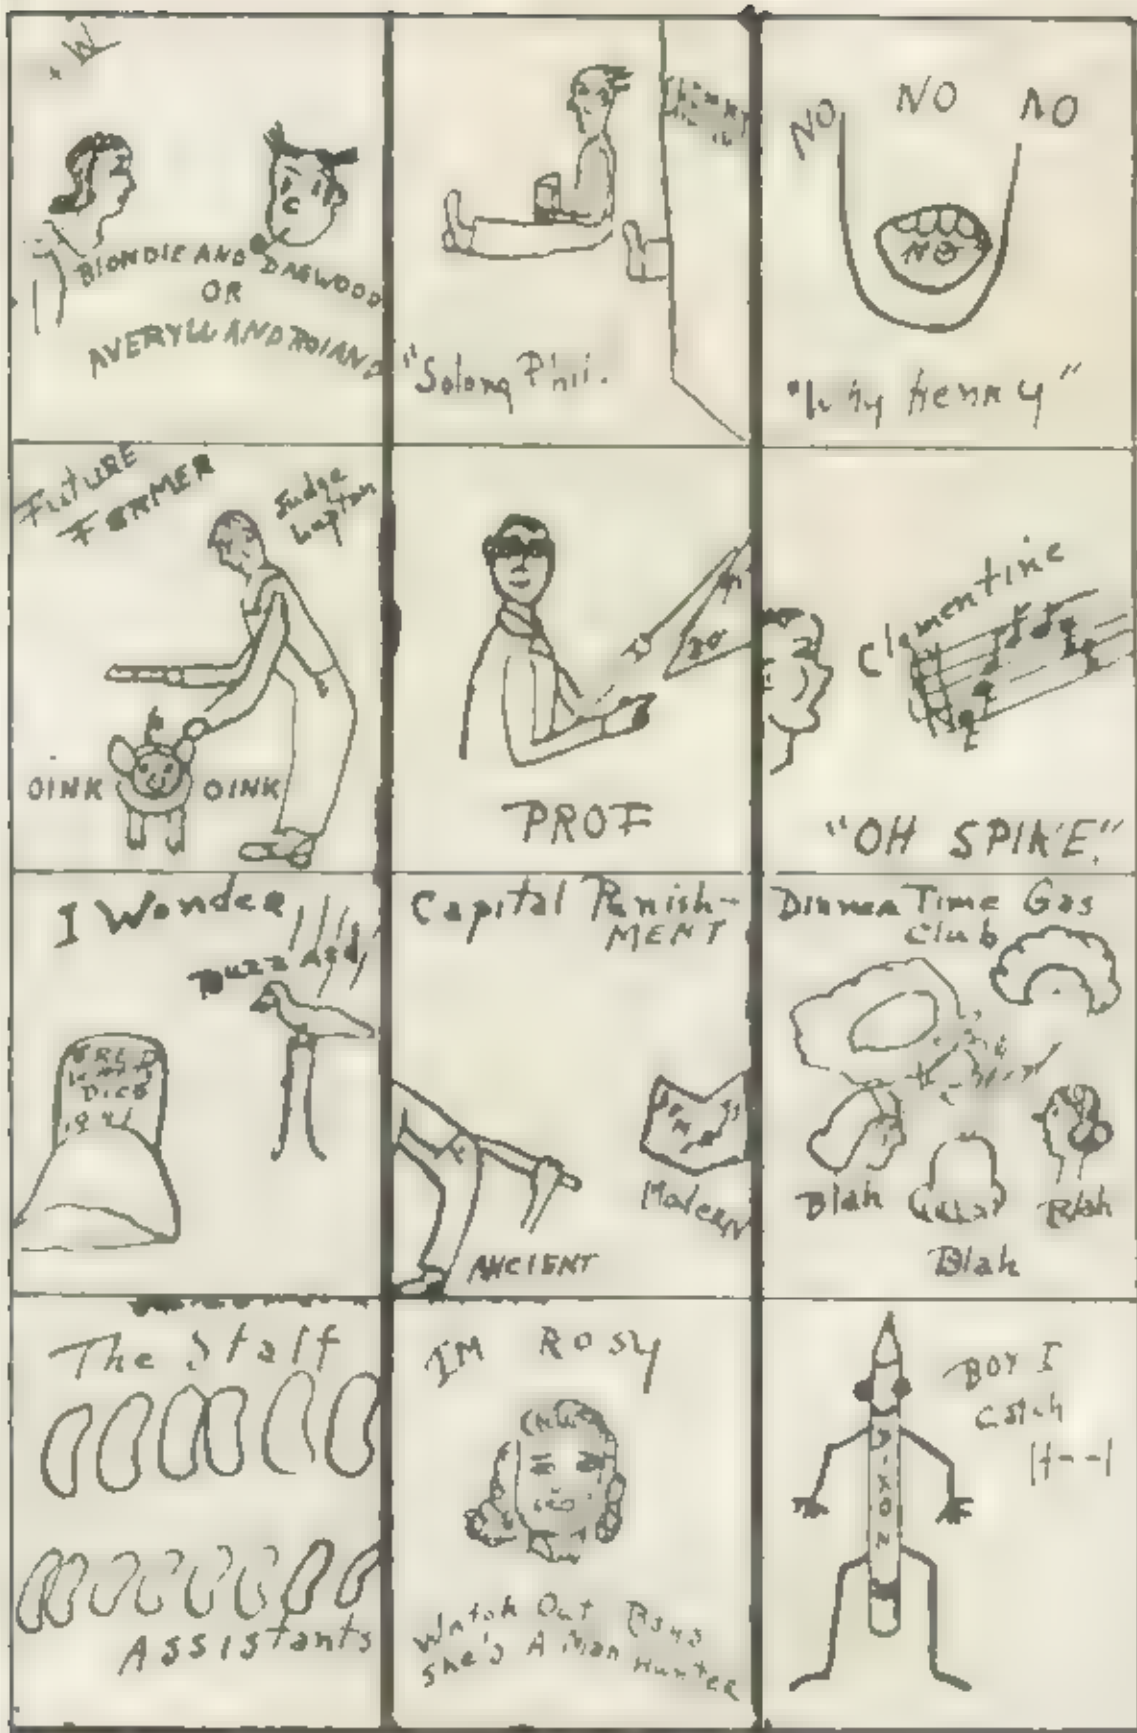 W
BLONDIE AND DAGWOOD
OR
AVERYLL AND ROLAND
"Solong Phil.
NO NO NO
NO
"Why Henry"
FUTURE
FARMER
Judge
Lupton
OINK OINK
20
PROF
Clementine
"OH SPIKE."
I Wonder
Buzzard
DIED
Capital Punish-
MENT
Modern
ANCIENT
Dinner Time Gas
Club
Blah
Blah
Blah
The Staff
Assistants
IM ROSY
Watch Out Boys
She's A Man Hunter
BOY I
Catch
H--l
DIXON